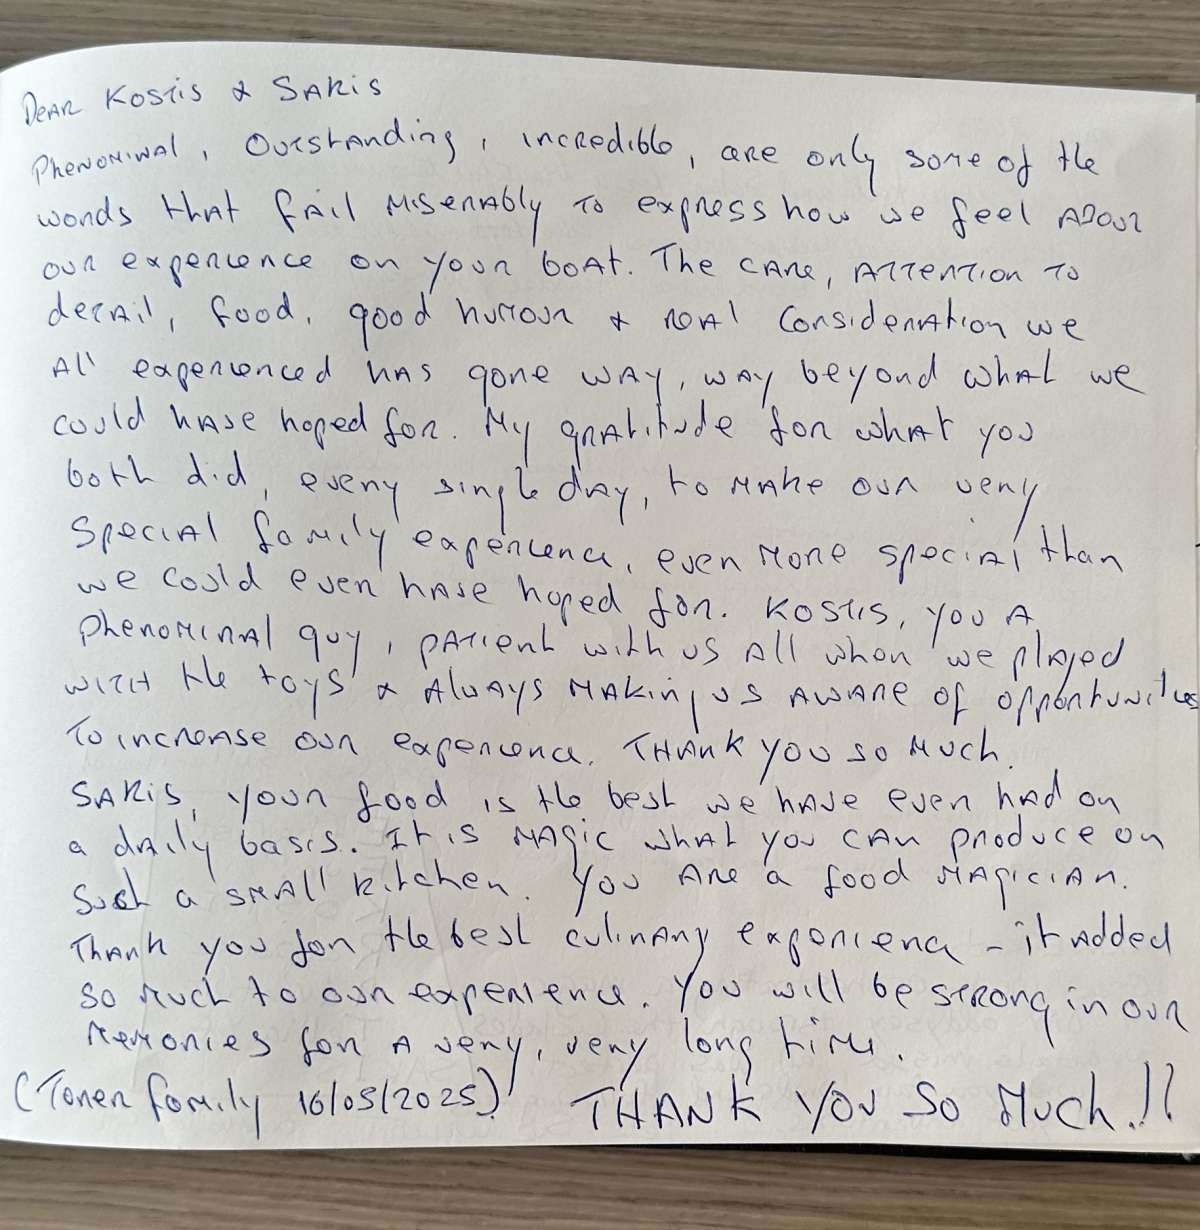 Dear Kostis & Sakis
Phenominal, Outstanding, incredible, are only some of the
words that fail miserably to express how we feel about
our experience on your boat. The care, attention to
detail, food, good humour & real consideration we
all experienced has gone way, way beyond what we
could have hoped for. My gratitude for what you
both did, every single day, to make our very
special family experience, even more special than
we could even have hoped for. Kostis, you a
phenominal guy, patient with us all when we played
with the toys & always making us aware of opportunities
to increase our experience. Thank you so much.
Sakis, your food is the best we have ever had on
a daily basis. It is magic what you can produce on
such a small kitchen. You are a food magician.
Thank you for the best culinary experience - it added
so much to our experience. You will be strong in our
memories for a very, very long time.
(Toner family 16/05/2025) THANK YOU SO MUCH!!